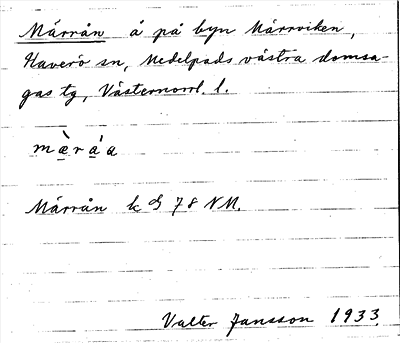 Märrån å på byn Märrviken,
Haverö sn, Medelpads västra domsa-
gas tg, Västernorrl. l.
mæ̀rá̱a
Märrån k 78 NM.
Valter Jansson 1933.